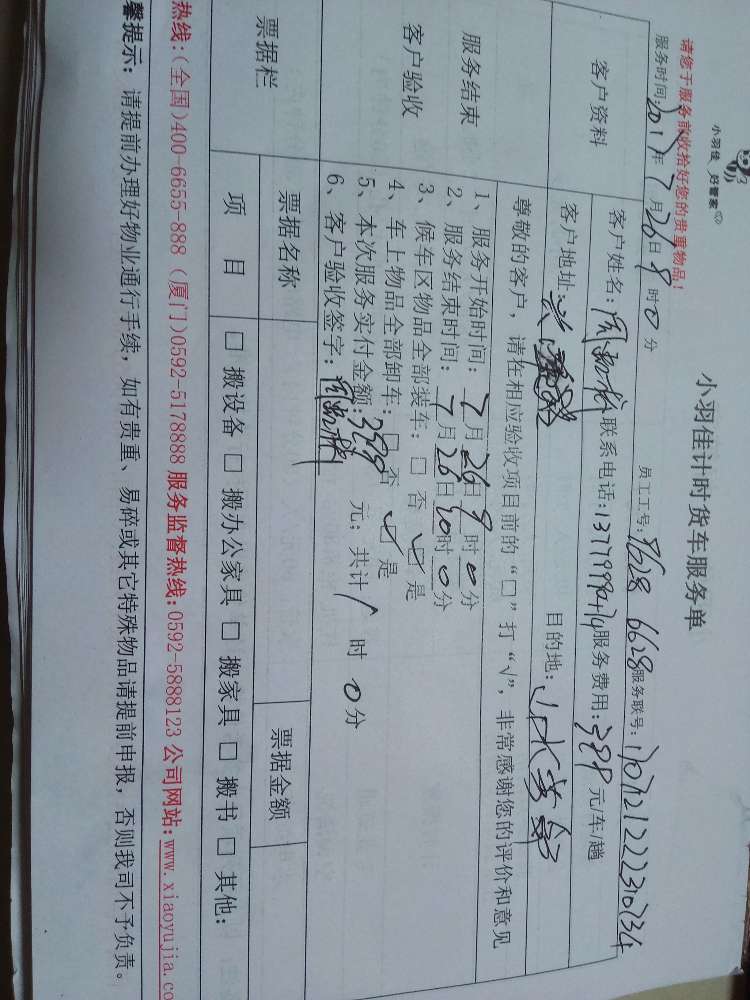 小羽佳 好管家
小羽佳计时货车服务单
请您于服务前收拾好您的贵重物品！
服务时间：2017年7月26日9时0分 员工工号：9628 6628 服务联号：
客户资料
客户姓名： 联系电话： 服务费用：398元/车/趟
客户地址： 目的地：
服务结束
客户验收
尊敬的客户，请在相应验收项目前的“□”打“√”，非常感谢您的评价和意见
1、服务开始时间：7月26日9时0分
2、服务结束时间：7月26日10时0分
3、候车区物品全部装车：□ 否 ☑ 是
4、车上物品全部卸车：□ 否 ☑ 是
5、本次服务实付金额：398元；共计1时0分
6、客户验收签字：
票据栏
票据名称 票据金额
项 目 □ 搬设备 □ 搬办公家具 □ 搬家具 □ 搬书 □ 其他：
热线：(全国)400-6655-888 (厦门)0592-5178888 服务监督热线：0592-5888123 公司网站：www.xiaoyujia.co
馨提示：请提前办理好物业通行手续，如有贵重、易碎或其它特殊物品请提前申报，否则我司不予负责。